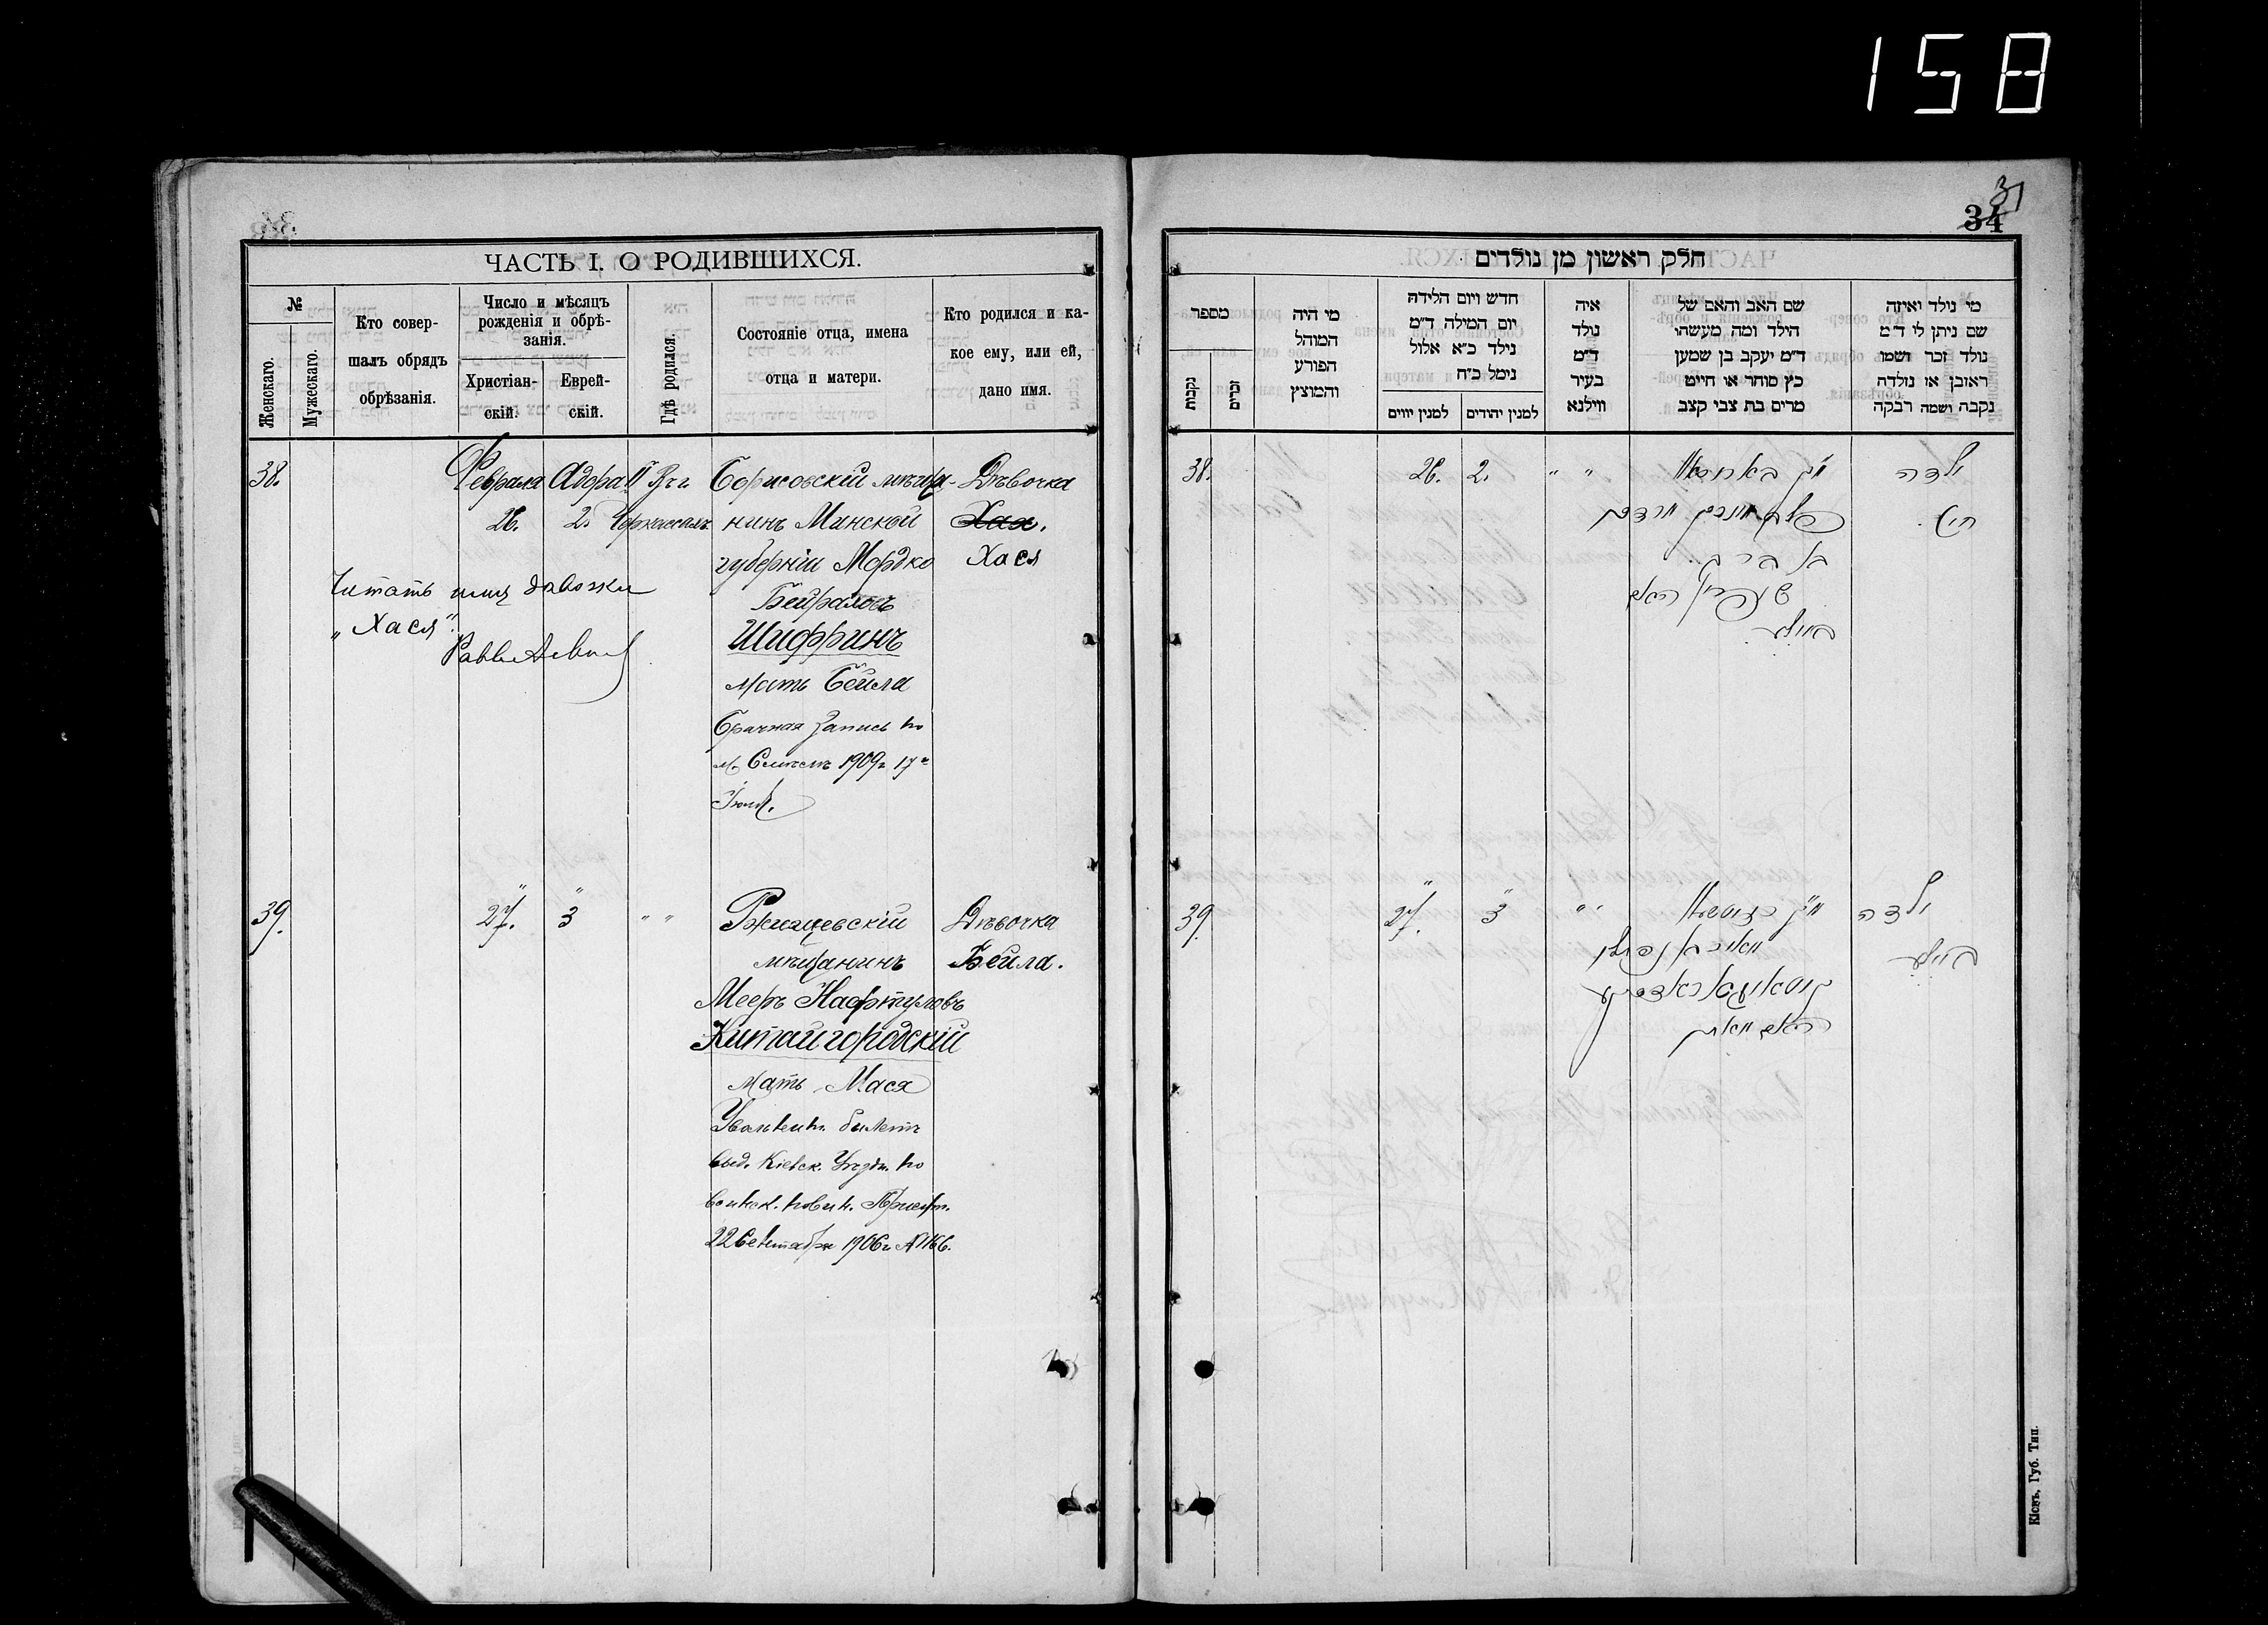 158
ЧАСТЬ I. О РОДИВШИХСЯ.
№
Женскаго.
Мужескаго.
Кто совер-
шалъ обрядъ
обрѣзанія.
Число и мѣсяцъ
рожденія и обрѣ-
занія.
Христіан-
скій.
Еврей-
скій.
Гдѣ родился.
Состояніе отца, имена
отца и матери.
Кто родился и ка-
кое ему, или ей,
дано имя.
38.
Февраля
26.
Адора II
2.
Въ г.
Черкассахъ
Борисовскій мѣща-
нинъ Минской
губерніи Мордко
Бейраховъ
Шифринъ
мать Бейла
Брачная запись по
м. 1909 г. 17
Дѣвочка
Хая.
Хася
Читать имя дѣвочки
„Хася“.
39.
27.
3
" "
Ржищевскій
мѣщанинъ
Мееръ Нафтуловъ
Китайгородскій
мать Мася
билетъ
выд. Кіевск. Уѣздн. по
воинск. повин. Присут.
22 Сентября 1906 г. № 1166.
Дѣвочка
Бейла.
34
31
חלק ראשון מן נולדים
מספר
נקבות
זכרים
מי היה
המוהל
הפורע
והמוצץ
חדש ויום הלידה
יום המילה ד״מ
נילד כ״א אלול
נימל כ״ח
למנין יווים
למנין יהודים
איה
נולד
ד״מ
בעיר
ווילנא
שם האב והאם של
הילד ומה מעשהו
ד״מ יעקב בן שמען
כץ סוחר או חייט
מרים בת צבי קצב
מי נולד ואיזה
שם ניתן לו ד״מ
נולד זכר ושמו
ראובן או נולדה
נקבה ושמה רבקה
38.
26.
2.
" "
שיפרין האם
ביילע
ילדה
39.
27.
3
" "
מאיר נפתלי
האם מאסי
ילדה
ביילע
Кіевъ, Губ. Тип.